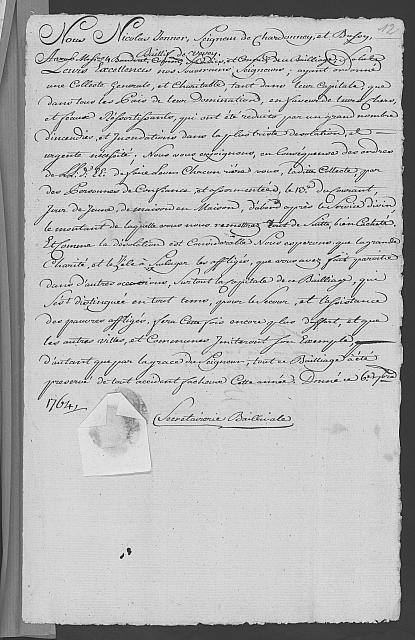 12
Nous Nicolas Jenner, Seigneur de Chardonney, et Bussy,
Baillif de
Leurs Excellences nos Souverains Seigneurs; ayant ordonné
une Collecte Generale, et Charitable tant dans leur Capitale, que
dans tous les Païs de leur Domination, en faveur de leurs chers,
et feaux Ressortissants, qui ont été reduits par un grand nombre
d'incendies, et Inondations dans la plus triste desolation, et
urgente necessité. Nous vous enjoignons, en Conséquence des ordres
de LL. EE. de faire lever Chacun riere vous, la dite Collecte, par
des Personnes de Confiance, et assermentées, le 13e du Courant,
Jour de Jeune, de maison en Maison, d'abord après le service divin
le montant de laquelle vous nous remettrez tout de Suitte, bien Cacheté
Et comme la désolation est Considerable Nous esperons, que la grande
Charité, et le Zèle à Soulager les affligés, que vous avez fait paroitre
dans d'autres occasions, Surtout la Capitale de ce Bailliage, qui
s'est distinguée en tout tems, pour le Secour, et l'assistance
des pauvres affligés, fera Cette fois encore plus d'effort, et que
les autres villes, et Communes Imiteront son Exemple,
d'autant que par la grace du Seigneur, tout ce Bailliage a été
preservé de tout accident facheux Cette année. Donné ce 6e 7bre
1764
Secretairerie Baillivale